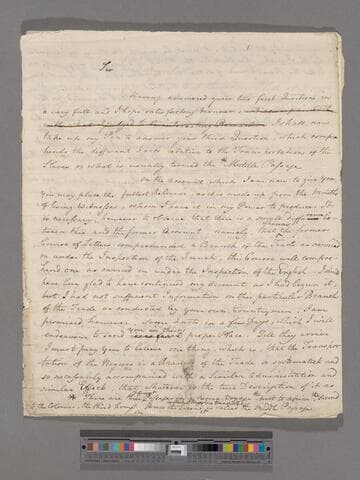 1
Sir
Having answered your two first Questions in
a very full and I hope satisfactory Manner,
I shall now
take up my Pen to answer your third Question, which compre
hends the different Facts relating to the Transportation of the
Slaves or what is usually termed the Middle Passage.
On the account which I am now to give you
you may place the fullest Reliance, as it is made up from the Mouths
of living Witnesses whom I have it in my Power to produce. It
is necessary however to observe that there is a single difference be
tween this and the former Account, namely that the former
Course of Letters comprehended a Branch of the Trade as carried
on under the Inspection of the French, this Course will compre=
hend one as carried on under the Inspection of the English. I should
have been glad to have continued my account as I had begun it,
but I had not sufficient Information on this particular Branch
of the Trade as conducted by your own Countrymen. I am
promised however some Facts in a few Days which I will
endeavour to send you in their proper Place. Till they arrive
I must pray you to believe one thing, which is, that the Transpor
tation of the Negroes is a Branch of the Trade so systematick and
so necessarily accompanied with a similar Administration and
similar Effects, that whatever is the true Description of it as
* There are three Voyages the first to Africa the second
to the Colonies, the third home, hence the second is called the middle Passage.